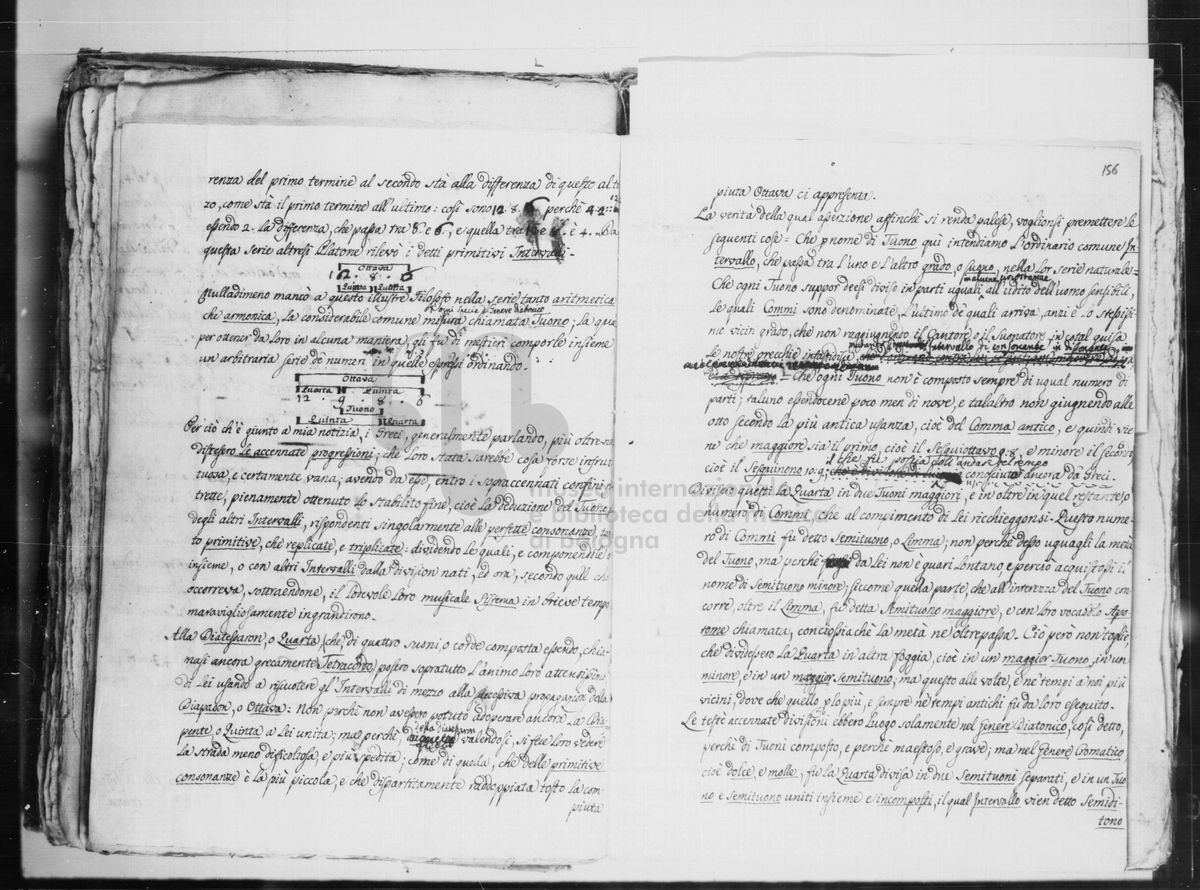 renza del primo termine al secondo stà alla differenza di questo al ter
zo, come stà il primo termine all'ultimo: così sono 12. 8. 6. perchè 4. 2 ::
essendo 2. la differenza, che passa tra 8. e 6., e quella tra 12 e 8. è 4. Da
questa serie altresì Platone rilevò i detti primitivi Intervalli.
Ottava
12. 8. 6
Quinta Quarta
Nulladimeno mancò a questo illustre Filosofo nella serie tanto aritmetica
che armonica, la considerabile comune misura chiamata Tuono; la qua
per ottener da loro in alcuna maniera, gli fu di mestieri comporle insieme
un arbitraria serie de numeri in quelle espressi ordinando.
Ottava
Quarta Quinta
12 . 9 . 8 . 6
Tuono
Quinta Quarta
Per ciò ch'è giunto a mia notizia, i Greci, generalmente parlando, più oltre non
distesero le accennate progressioni; che loro stata sarebbe cosa forse infrut
tuosa, e certamente vana; avendo da esse, entro i sopraccennati confini ri
strette, pienamente ottenuto lo stabilito fine, cioè la deduzione del Tuono,
degli altri Intervalli, rispondenti singolarmente alle perfette consonanze,
to primitive, che replicate, e triplicate: dividendo le quali, e componendole
insieme, o con altri Intervalli dalla division nati, ed ora, secondo che
occorreva, sottraendone, il lodevole loro musicale Sistema in brieve tempo
maravigliosamente ingrandirono.
Alla Diatessaron, o Quarta (che, di quattro suoni, o corde composta essendo, chia-
masi ancora grecamente Tetracordo) posero sopratutto l'animo loro attensissimo
di lei usando a riscuotere gl'Intervalli di mezzo alla successiva propaganza della
Diapason, o Ottava: Non perchè non avessero potuto adoperare ancora la Dia
pente, o Quinta a lei unita; ma perchè, della Diatessaron valendosi, si fece loro vedere
la strada meno dificoltosa, e più spedita; come di quella, che delle primitive
consonanze è la più piccola, e che dispartitamente raddoppiata tosto la com-
piuta
156
piuta Ottava ci appresenta.
La verità della qual asserzione affinchè si renda palese, voglionsi premettere le
seguenti cose = Che p nome di Tuono quì intendiamo l'ordinario comune In-
tervallo, che passa tra l'uno e l'altro grado, o suono, nella lor serie naturale =
Che ogni Tuono suppor deesi diviso in parti uguali, all'udito dell'uomo sensibili,
le quali Commi sono denominate, l'ultimo de quali arriva, anzi è lo stessissi
mo vicin grado, che non raggiugnendo il Cantore, o il Suonatore, in cotal guisa
le nostre orecchie intendisa
= Che ogni Tuono non è composto sempre di ugual numero di
parti; taluno essendocene poco men di nove, e talaltro non giugnendo alle
otto secondo la più antica usanza, cioè del Comma antico, e quindi vie
ne che maggiore sia il primo, cioè il Sesquiottavo 9. 8., e minore il secondo,
cioè il Sesquinono 10. 9; conosciuto ancora da Greci.
Divisero questi la Quarta in due Tuoni maggiori, e in oltre in quel restantesi
numero di Commi che al compimento di lei richieggonsi. Questo nume-
ro di Commi fu detto Semituono, o Limma; non perchè desso uguagli la metà
del Tuono, ma perchè da lei non è guari lontano e perciò acquistossi il
nome di Semituono minore; siccome quella parte, che all'interezza del Tuono con
corre, oltre il Limma, fu detta Semituono maggiore, e con loro vocabolo Apo-
tome chiamata, conciossiachè la metà ne oltrepassa. Ciò però non toglie,
che dividessero la Quarta in altra foggia, cioè in un maggior Tuono, in un
minore, e in un maggior Semituono; ma questo alle volte, e ne' tempi a noi più
vicini, dove che quello p lo più, e sempre ne tempi antichi fù da loro eseguito.
Le testè accennate divisioni ebbero luogo solamente nel Genere Diatonico, così detto,
perchè di Tuoni composto, e perchè maestoso, e grave; ma nel Genere Cromatico
cioè dolce, e molle, fu la Quarta divisa in due Semituoni separati, e in un Tuo
no e Semituono uniti insieme e incomposti, il qual Intervallo vien detto Semidi-
tono
museo internazionale
e biblioteca della musica
di bologna